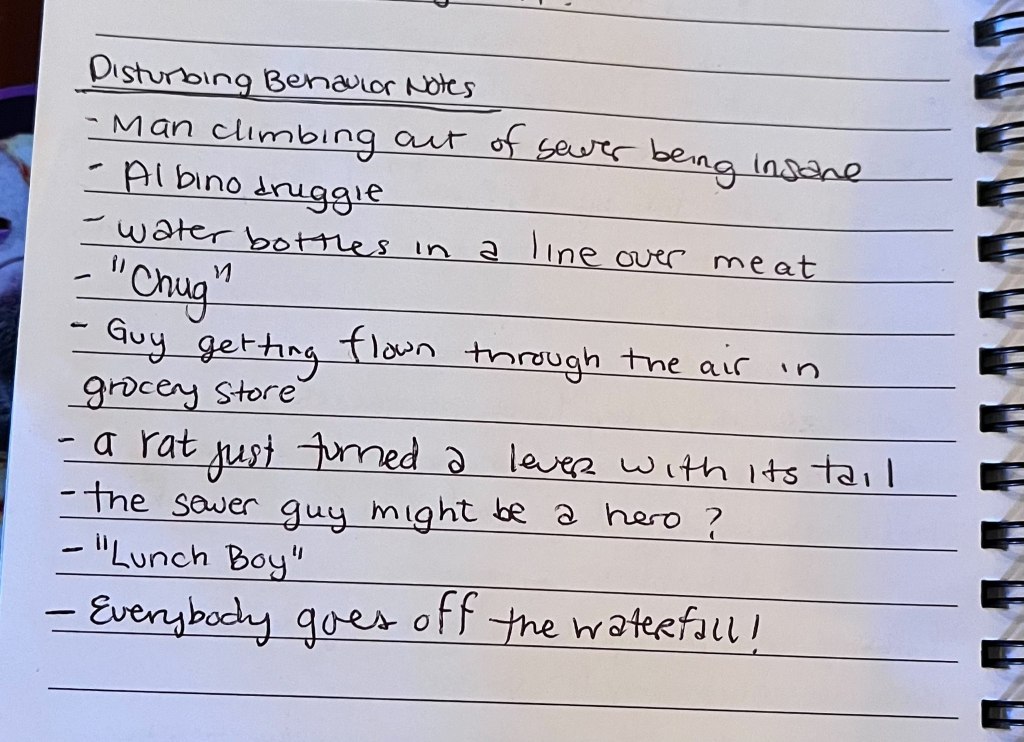 Disturbing Behavior Notes
- Man climbing out of sewer being insane
- Albino druggie
- water bottles in a line over meat
- "Chug"
- Guy getting flown through the air in
grocery store
- a rat just turned a lever with its tail
- the sewer guy might be a hero?
- "Lunch Boy"
- Everybody goes off the waterfall!